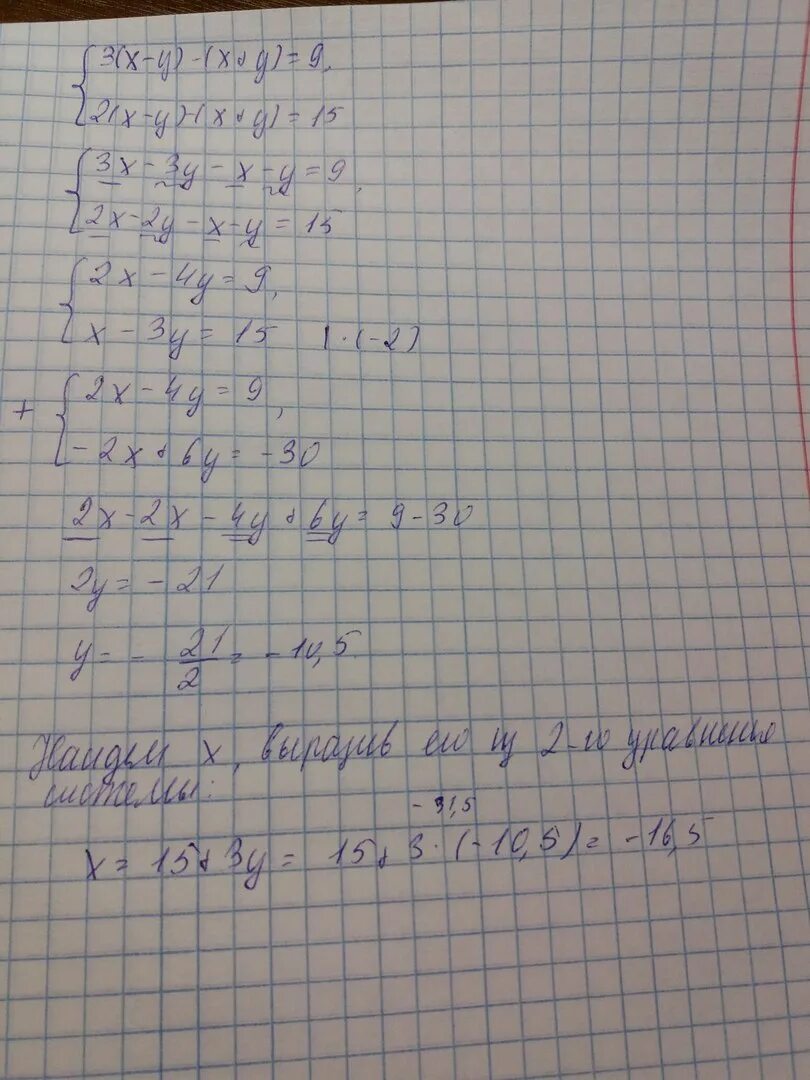 3(x-y)-(x+y)=9,
2(x-y)-(x+y)=15
3x-3y-x-y=9,
2x-2y-x-y=15
2x-4y=9,
x-3y=15 |·(-2)
+ 2x-4y=9,
-2x+6y=-30
2x-2x-4y+6y=9-30
2y=-21
y=-21/2=-10,5
Найдем x, выразив его из 2-го уравнения
системы:
-31,5
x=15+3y=15+3·(-10,5)=-16,5